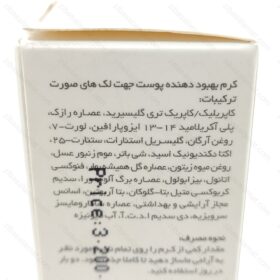 کرم بهبود دهنده پوست جهت لک های صورت
ترکیبات:
کاپریلیک/کاپریک تری گلیسیرید، عصاره رازک،
پلی آکریلامید ۱۴-۱۳ ایزوپارافین، لورت-۷،
روغن آرگان، گلیسریل استئارات، ستئارت-۲۵،
اکتا دکندیونیک اسید، شی باتر، موم زنبور عسل،
روغن میوه زیتون، عصاره گل همیشه بهار، فنوکسی
اتانول، بیزابولول، عصاره برگ آلوئه ورا، سدیم
کربوکسی متیل بتا-گلوکان، بتا کاروتن، اسانس
مجاز آرایشی و بهداشتی، عصاره ساکارومایسز
سرویزیه، دی سدیم ا.د.ت.آ، آب،
نحوه مصرف:
مقدار کمی از کرم را روی تمام نقاط مورد نظر
به آرامی ماساژ دهید تا کاملا جذب شود. دو بار
در روز استفاده کنید.
Price:3200